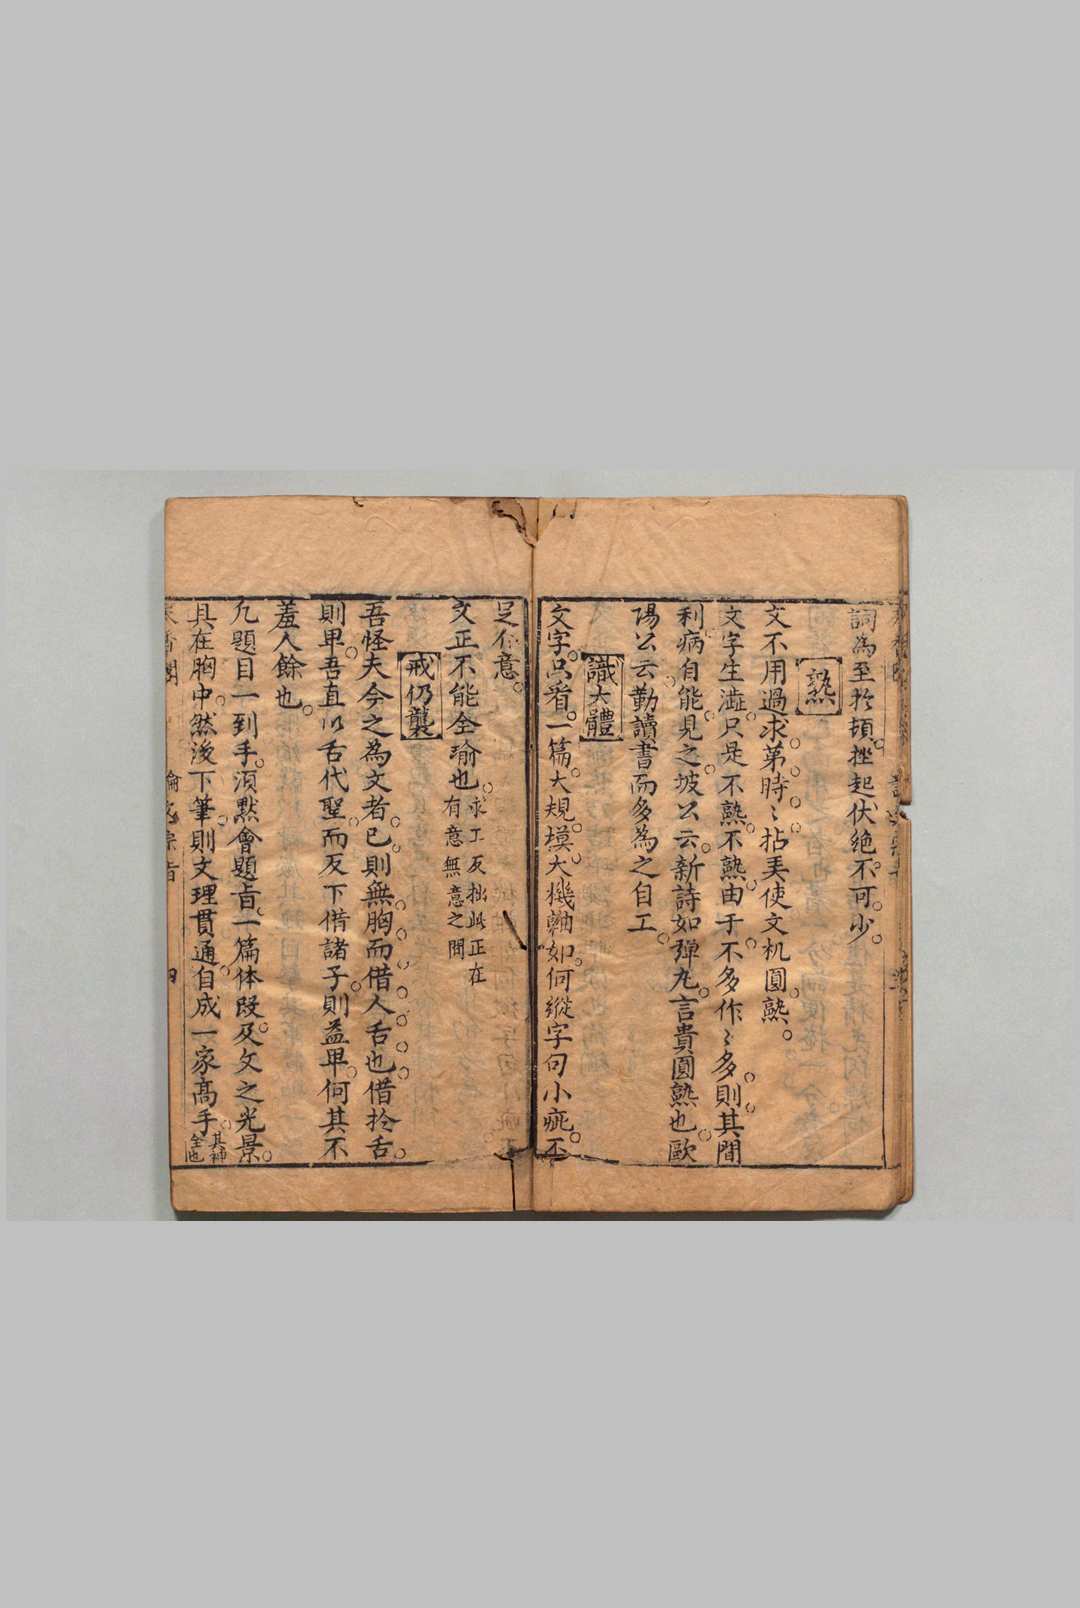 詞為至於頓挫起伏絶不可少
熟
文不用過求第時〻拈弄使文机圓熟
文字生澁只是不熟不熟由于不多作〻多則其間
利病自能見之坡公云新詩如彈丸言貴圓熟也歐
陽公云勤讀書而多為之自工
識大體
文字只看一篇大規模大機軸如何縱字句小疵不
足介意
文正不能全瑜也求工反拙此正在
有意無意之間
戒仍襲
吾怪夫今之為文者已則無胸而借人舌也借於舌
則卑吾直以舌代聖而反下借諸子則益卑何其不
羞人餘也
凢題目一到手湏黙會題旨一篇体段及文之光景
具在胸中然後下筆則文理貫通自成一家高手其神
全也
論文宗旨
四